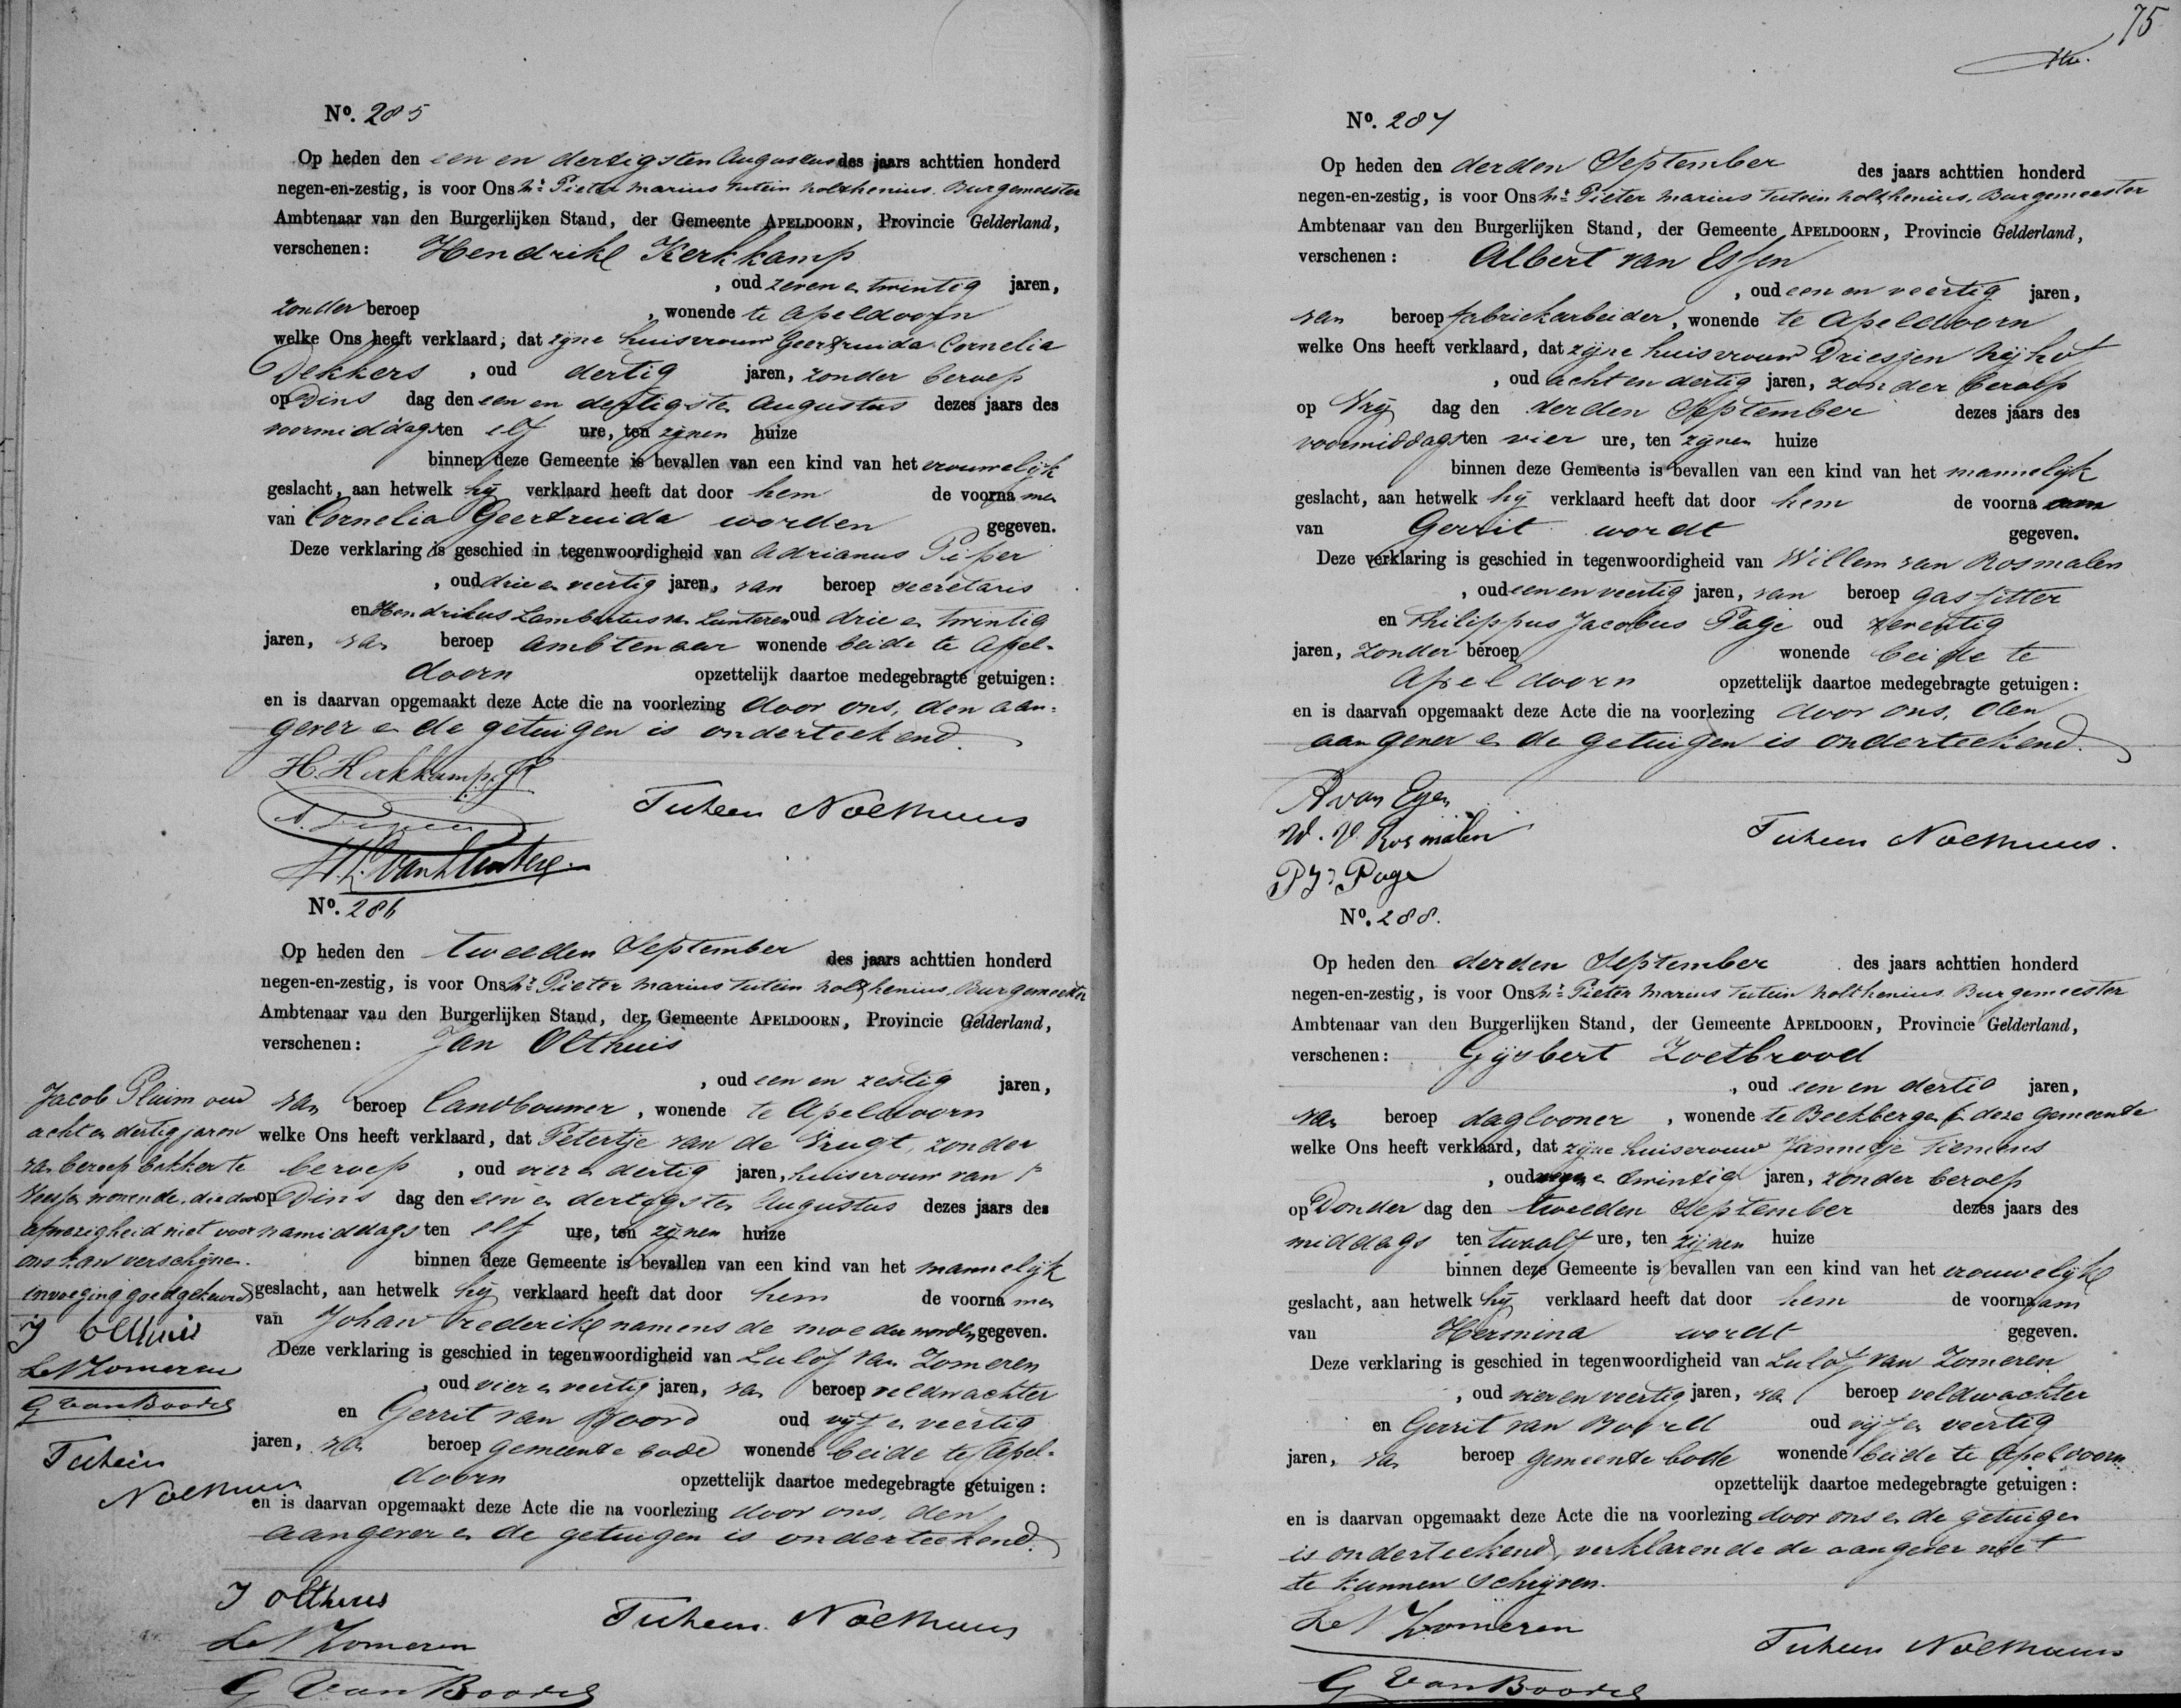 No. 285
Op heden den een en dertigsten Augustus des jaars achttien honderd
negen-en-zestig, is voor Ons Mr Pieter Marius Tutein Nolthenius. Burgemeester
Ambtenaar van den Burgerlijken Stand, der Gemeente APELDOORN, Provincie Gelderland,
verschenen: Hendrik Kerkkamp
, oud zeven en twintig jaren,
zonder beroep , wonende te Apeldoorn
welke Ons heeft verklaard, dat zijne huisvrouw Geertruida Cornelia
Dekkers , oud dertig jaren, zonder beroep
op Dins dag den een en dertigsten Augustus dezes jaars des
voormiddags ten elf ure, ten zijnen huize
binnen deze Gemeente is bevallen van een kind van het vrouwelijk
geslacht, aan hetwelk hij verklaard heeft dat door hem de voorna men
van Cornelia Geertruida worden gegeven.
Deze verklaring is geschied in tegenwoordigheid van Adrianus Piper
, oud drie en veertig jaren, van beroep secretaris
en Hendrikus Lambertus van Lunteren oud drie en twintig
jaren, van beroep ambtenaar wonende beide te Apel-
doorn opzettelijk daartoe medegebragte getuigen:
en is daarvan opgemaakt deze Acte die na voorlezing door ons, den aan-
gever en de getuigen is onderteekend.
H. Kerkkamp
Tutein Nolthenius
H.L. van Lunteren
No. 286
Op heden den tweeden September des jaars achttien honderd
negen-en-zestig, is voor Ons Mr Pieter Marius Tutein Nolthenius Burgemeester
Ambtenaar van den Burgerlijken Stand, der Gemeente APELDOORN, Provincie Gelderland,
verschenen: Jan Olthuis
, oud een en zestig jaren,
van beroep landbouwer, wonende te Apeldoorn
welke Ons heeft verklaard, dat Petertje van de Vrugt, zonder
beroep , oud vier en dertig jaren, huisvrouw van
op Dins dag den een en dertigsten Augustus dezes jaars des
namiddags ten elf ure, ten zijnen huize
binnen deze Gemeente is bevallen van een kind van het mannelijk
geslacht, aan hetwelk hij verklaard heeft dat door hem de voorna men
van Johan Frederik namens de moeder worden gegeven.
Deze verklaring is geschied in tegenwoordigheid van Lulof van Zomeren
, oud vier en veertig jaren, van beroep veldwachter
en Gerrit van Boord oud vijf en veertig
jaren, van beroep gemeente bode wonende beide te Apel-
doorn opzettelijk daartoe medegebragte getuigen:
en is daarvan opgemaakt deze Acte die na voorlezing door ons, den
aangever en de getuigen is onderteekend.
J Olthuis
L v Zomeren
Tutein Nolthenius
G van Boord
Jacob Pluim oud
acht en dertig jaren
van beroep bakker te
wonende, die door
afwezigheid niet voor
ons kan verschijnen.
invoeging goedgekeurd
J Olthuis
L v Zomeren
G van Boord
Tutein
Nolthenius
75
No. 287
Op heden den derden September des jaars achttien honderd
negen-en-zestig, is voor Ons Mr Pieter Marius Tutein Nolthenius. Burgemeester
Ambtenaar van den Burgerlijken Stand, der Gemeente APELDOORN, Provincie Gelderland,
verschenen: Albert van Essen
, oud een en veertig jaren,
van beroep fabriekarbeider, wonende te Apeldoorn
welke Ons heeft verklaard, dat zijne huisvrouw Driesjen Nijhof
, oud acht en dertig jaren, zonder beroep
op Vrij dag den derden September dezes jaars des
voormiddags ten vier ure, ten zijnen huize
binnen deze Gemeente is bevallen van een kind van het mannelijk
geslacht, aan hetwelk hij verklaard heeft dat door hem de voorna am
van Gerrit wordt gegeven.
Deze verklaring is geschied in tegenwoordigheid van Willem van Rosmalen
, oud een en veertig jaren, van beroep gasfitter
en Philippus Jacobus Page oud zeventig
jaren, zonder beroep wonende beide te
Apeldoorn opzettelijk daartoe medegebragte getuigen:
en is daarvan opgemaakt deze Acte die na voorlezing door ons, den
aangever en de getuigen is onderteekend.
A van Essen
W. V. Rosmalen
Tutein Nolthenius.
PJ Page
No. 288.
Op heden den derden September des jaars achttien honderd
negen-en-zestig, is voor Ons Mr Pieter Marius Tutein Nolthenius Burgemeester
Ambtenaar van den Burgerlijken Stand, der Gemeente APELDOORN, Provincie Gelderland,
verschenen: Gijsbert Zoetbrood
, oud een en dertig jaren,
van beroep daglooner , wonende te Beekbergen deze gemeente
welke Ons heeft verklaard, dat zijne huisvrouw Jannetje Tiemens
, oud en twintig jaren, zonder beroep
op Donder dag den tweeden September dezes jaars des
middags ten twaalf ure, ten zijnen huize
binnen deze Gemeente is bevallen van een kind van het vrouwelijk
geslacht, aan hetwelk hij verklaard heeft dat door hem de voorna am
van Hermina wordt gegeven.
Deze verklaring is geschied in tegenwoordigheid van Lulof van Zomeren
, oud vier en veertig jaren, van beroep veldwachter
en Gerrit van Boord oud vijf en veertig
jaren, van beroep gemeente bode wonende beide te Apeldoorn
opzettelijk daartoe medegebragte getuigen:
en is daarvan opgemaakt deze Acte die na voorlezing door ons en de getuigen
is onderteekend, verklarende de aangever niet
te kunnen schrijven.
L v Zomeren
Tutein Nolthenius
G van Boord